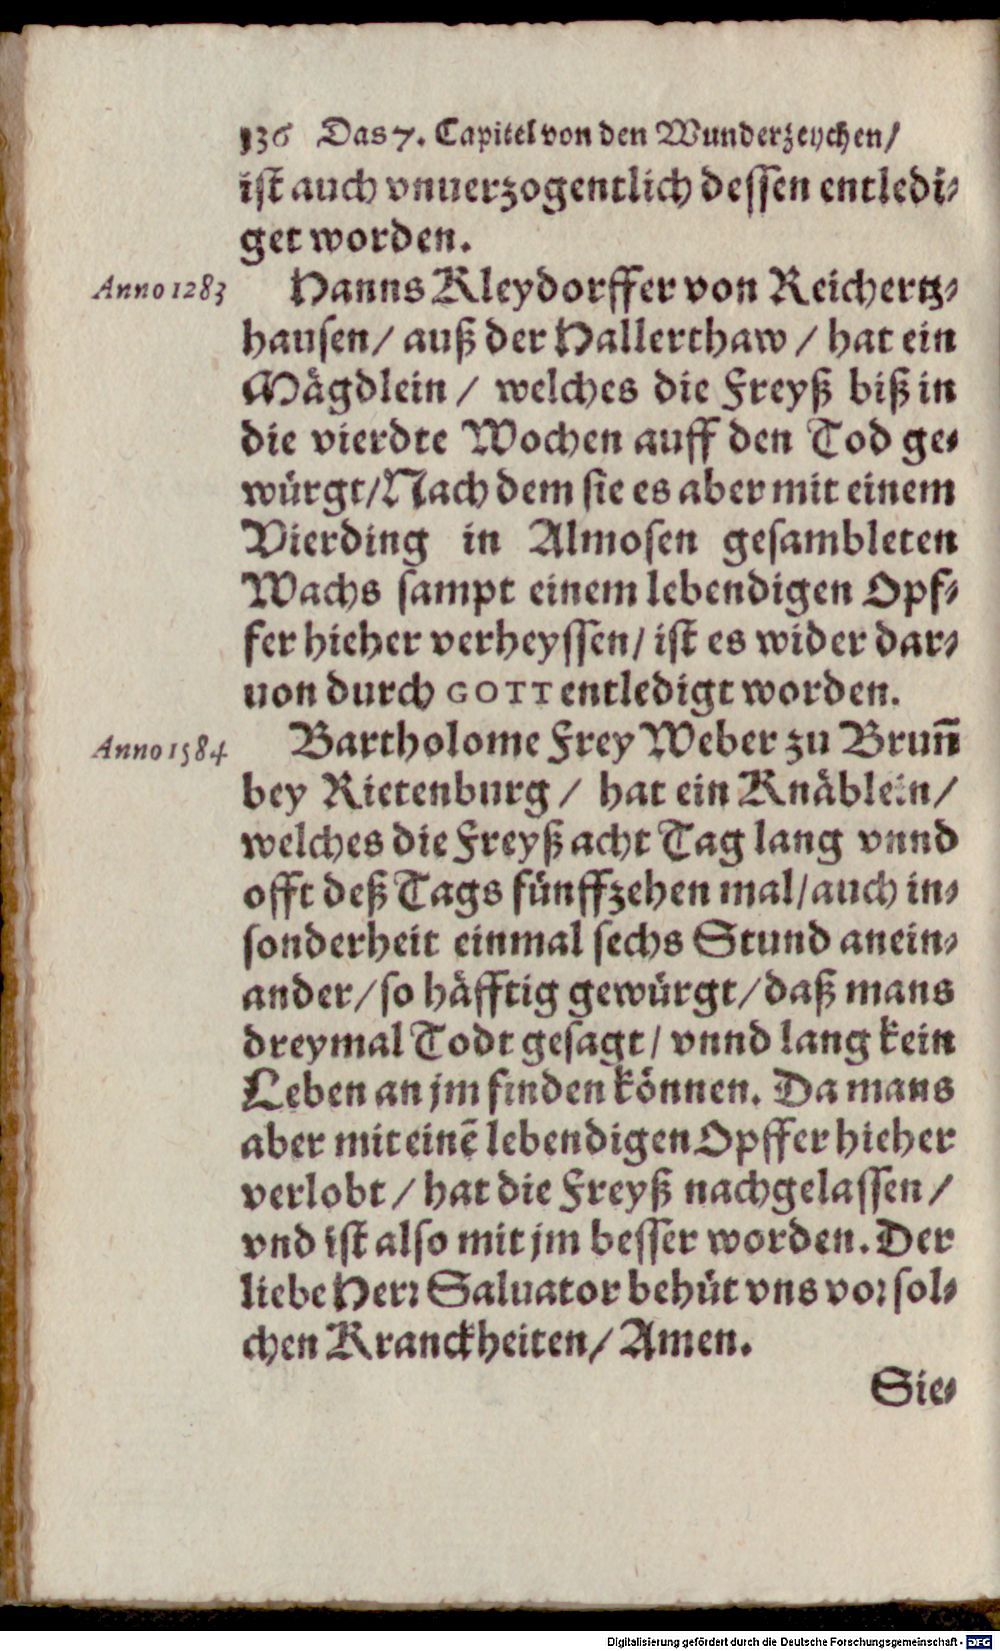 136 Das 7. Capitel von den Wunderzeychen/
ist auch vnuerzogentlich dessen entledi-
get worden.
Anno 1283
Hanns Kleydorffer von Reichertz-
hausen/ auß der Hallerthaw / hat ein
Mägdlein / welches die Freyß biß in
die vierdte Wochen auff den Tod ge-
würgt/Nach dem sie es aber mit einem
Vierding in Almosen gesambleten
Wachs sampt einem lebendigen Opf-
fer hieher verheyssen/ ist es wider dar-
uon durch GOTT entledigt worden.
Anno 1584
Bartholome Frey Weber zu Brun̄
bey Rietenburg / hat ein Knäblein/
welches die Freyß acht Tag lang vnnd
offt deß Tags fünffzehen mal/auch in-
sonderheit einmal sechs Stund anein-
ander/so häfftig gewürgt/daß mans
dreymal Todt gesagt/ vnnd lang kein
Leben an jm finden können. Da mans
aber mit einē lebendigen Opffer hieher
verlobt / hat die Freyß nachgelassen /
vnd ist also mit jm besser worden. Der
liebe Herr Saluator behüt vns vor sol-
chen Kranckheiten/ Amen.
Sie-
Digitalisierung gefördert durch die Deutsche Forschungsgemeinschaft - DFG